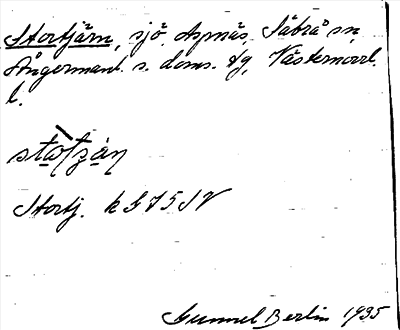 Stortjärn, sjö, Aspnäs, Säbrå sn,
Ångermanl. s. doms. tg, Västernorrl.
l.
Stortj. k G 75 SV
Gunnel Berlin 1935